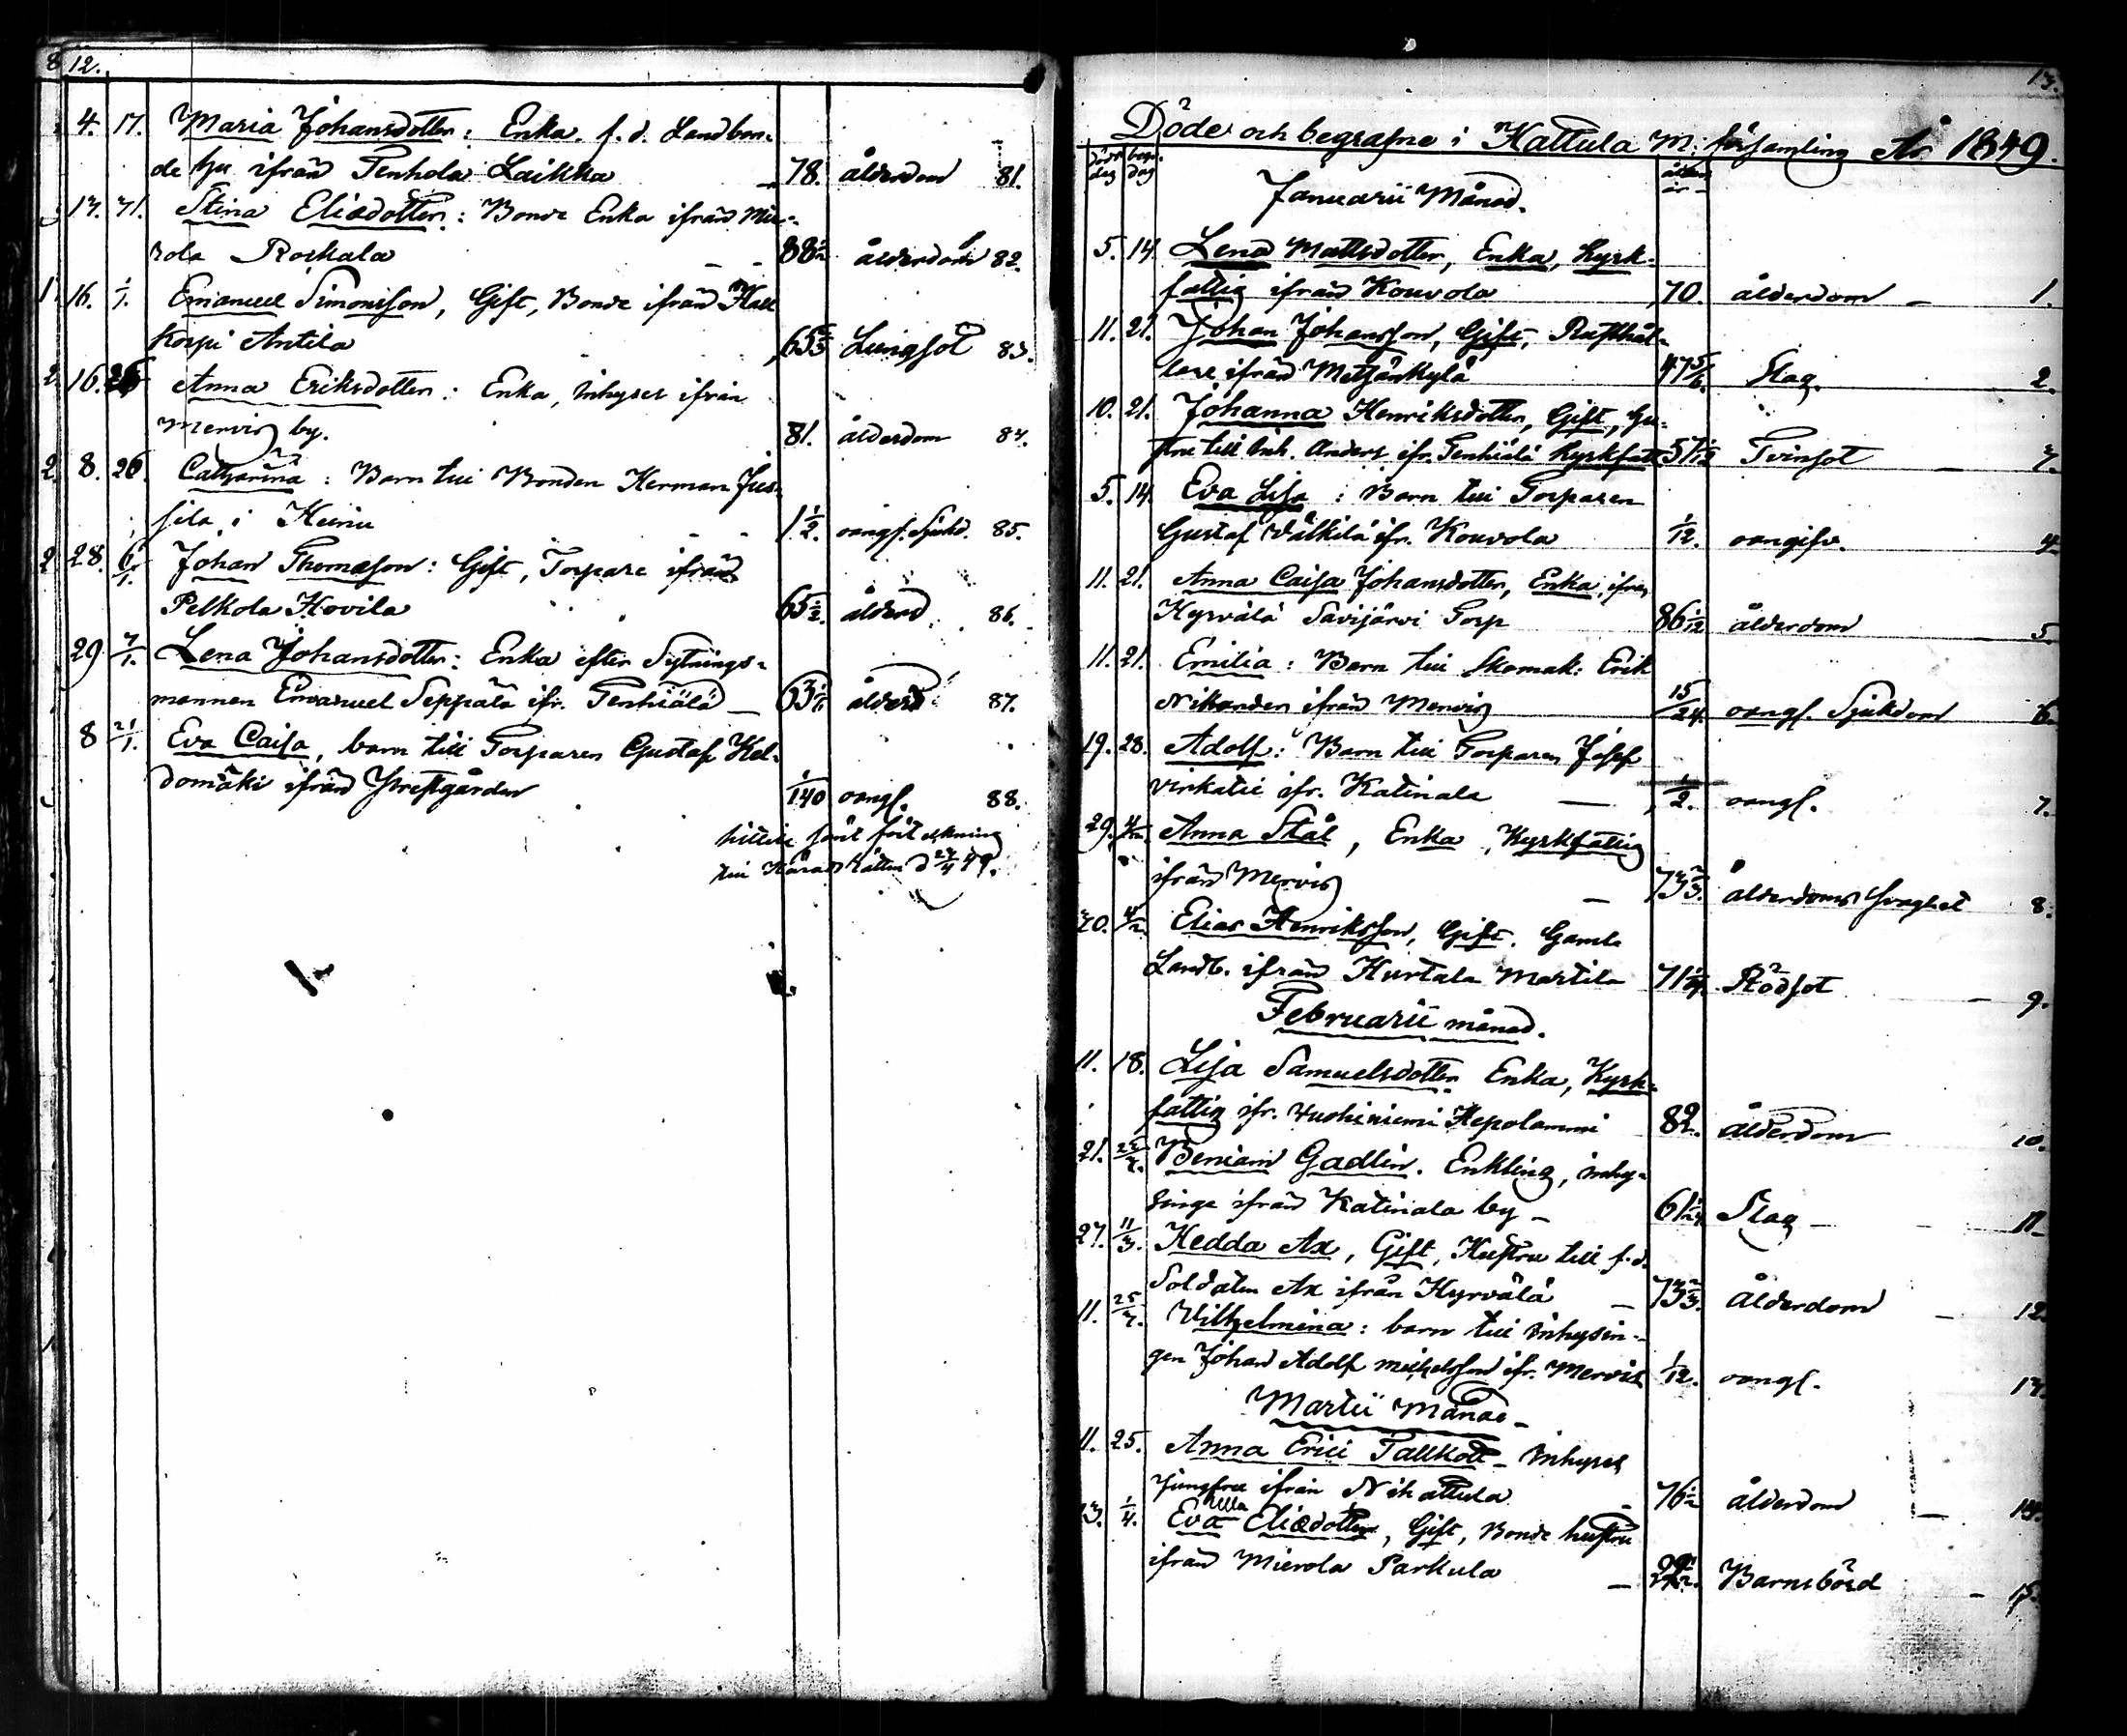 8 12.
4. 17. Maria Johansdotter: Enka. f. d. Landbon-
de hu ifrån Tenhola Laikka 78. ålderdom 81.
17. 31. Stina Eliædotter: Bonde Enka ifrån Mie-
rola Roskala 88½ ålderdom 82.
16. 1/1. Emanuel Simonsson, Gift, Bonde ifrån
korpi Antila 65⅔ Lungsot 83.
16. 26 Anna Eriksdotter: Enka, inhyses ifrån
Mervis by. 81. ålderdom 84.
8. 26. Catharina: Barn till Bonden Herman Jus-
sila i Keiniu 1½. oangf. Sjukd. 85.
28. 6/1. Johan Thomasson: Gift, Torpare ifrån
Pelkola Hovila 65½. ålderd. 86.
29 7/1. Lena Johansdotter: Enka efter Sytnings-
mannen Emanuel Seppälä ifr. Tenhiälä 63 ålderd 87.
8 21/1. Eva Caisa, barn till Torparen Gustaf Kel-
domäki ifrån Prestgården 1/140 oangf. 88.
hittils sänt förteckning
till Härads Rätten d 27/4 49.
13.
Döde och begrafne i Hattula M: församling År 1849.
döds dag begr. dag ålder år
Januarii Månad.
5. 14. Lena Mattsdotter, Enka, Kyrk-
fattig ifrån Kouvola 70. ålderdom 1.
11. 21. Johan Johansson, Gift, Rusthål-
lare ifrån Metsänkylä 47 5/6. Slag. 2.
10. 21. Johanna Henriksdotter, Gift, Hu-
stru till Inh. Anders ifr. Tenhiälä Kyrkfatt. 57 1/12 Tvinsot 3.
5. 14. Eva Lisa: Barn till Torparen
Gustaf Välkilä ifr. Kouvola 1/12. oangifv. 4.
11. 21. Anna Caisa Johansdotter, Enka, ifrån
Hyrvälä Savijärvi Torp 86 1/12 ålderdom 5.
11. 21. Emilia: Barn till Skomak: Erik
Nikander ifrån Mervis 15/24. oangf. Sjukdom 6.
19. 28. Adolf: Barn till Torparen Josef
Virkatie ifr. Katinala ½. oangf. 7.
29. 4/2. Anna Stål, Enka, Kyrkfattig
ifrån Mervis 73⅔. ålderdoms svaghet 8.
30. 4/2. Elias Henriksson, Gift. Gamla
Landb. ifrån Hurtala Martila 71 Rödsot 9.
Februarii månad.
11. 18. Lisa Samuelsdotter Enka, Kyrk-
fattig ifr. Vuohiniemi Hepolammi 82. ålderdom 10.
21. 25/3. Beniam Gadlin. Enkling, inhy-
singe ifrån Katinala by 61 1/24 Slag 11.
27. 11/3. Hedda Ax, Gift, Hustru till f.d.
Soldaten Ax ifrån Hyrvälä 73⅔. Ålderdom 12.
11. 25/3. Vilhelmina: barn till inhysin-
gen Johan Adolf Michelsson ifr. Mervis 1/12. oangf. 13.
Martii Månad
11. 25. Anna Erici Tallkott inhyses
Jungfru ifrån Nihattula 76½ ålderdom 14.
13. 1/4. Eva Ulla Eliædotter, Gift, Bonde hustru
ifrån Mierola Parkula Barnsbörd 15.